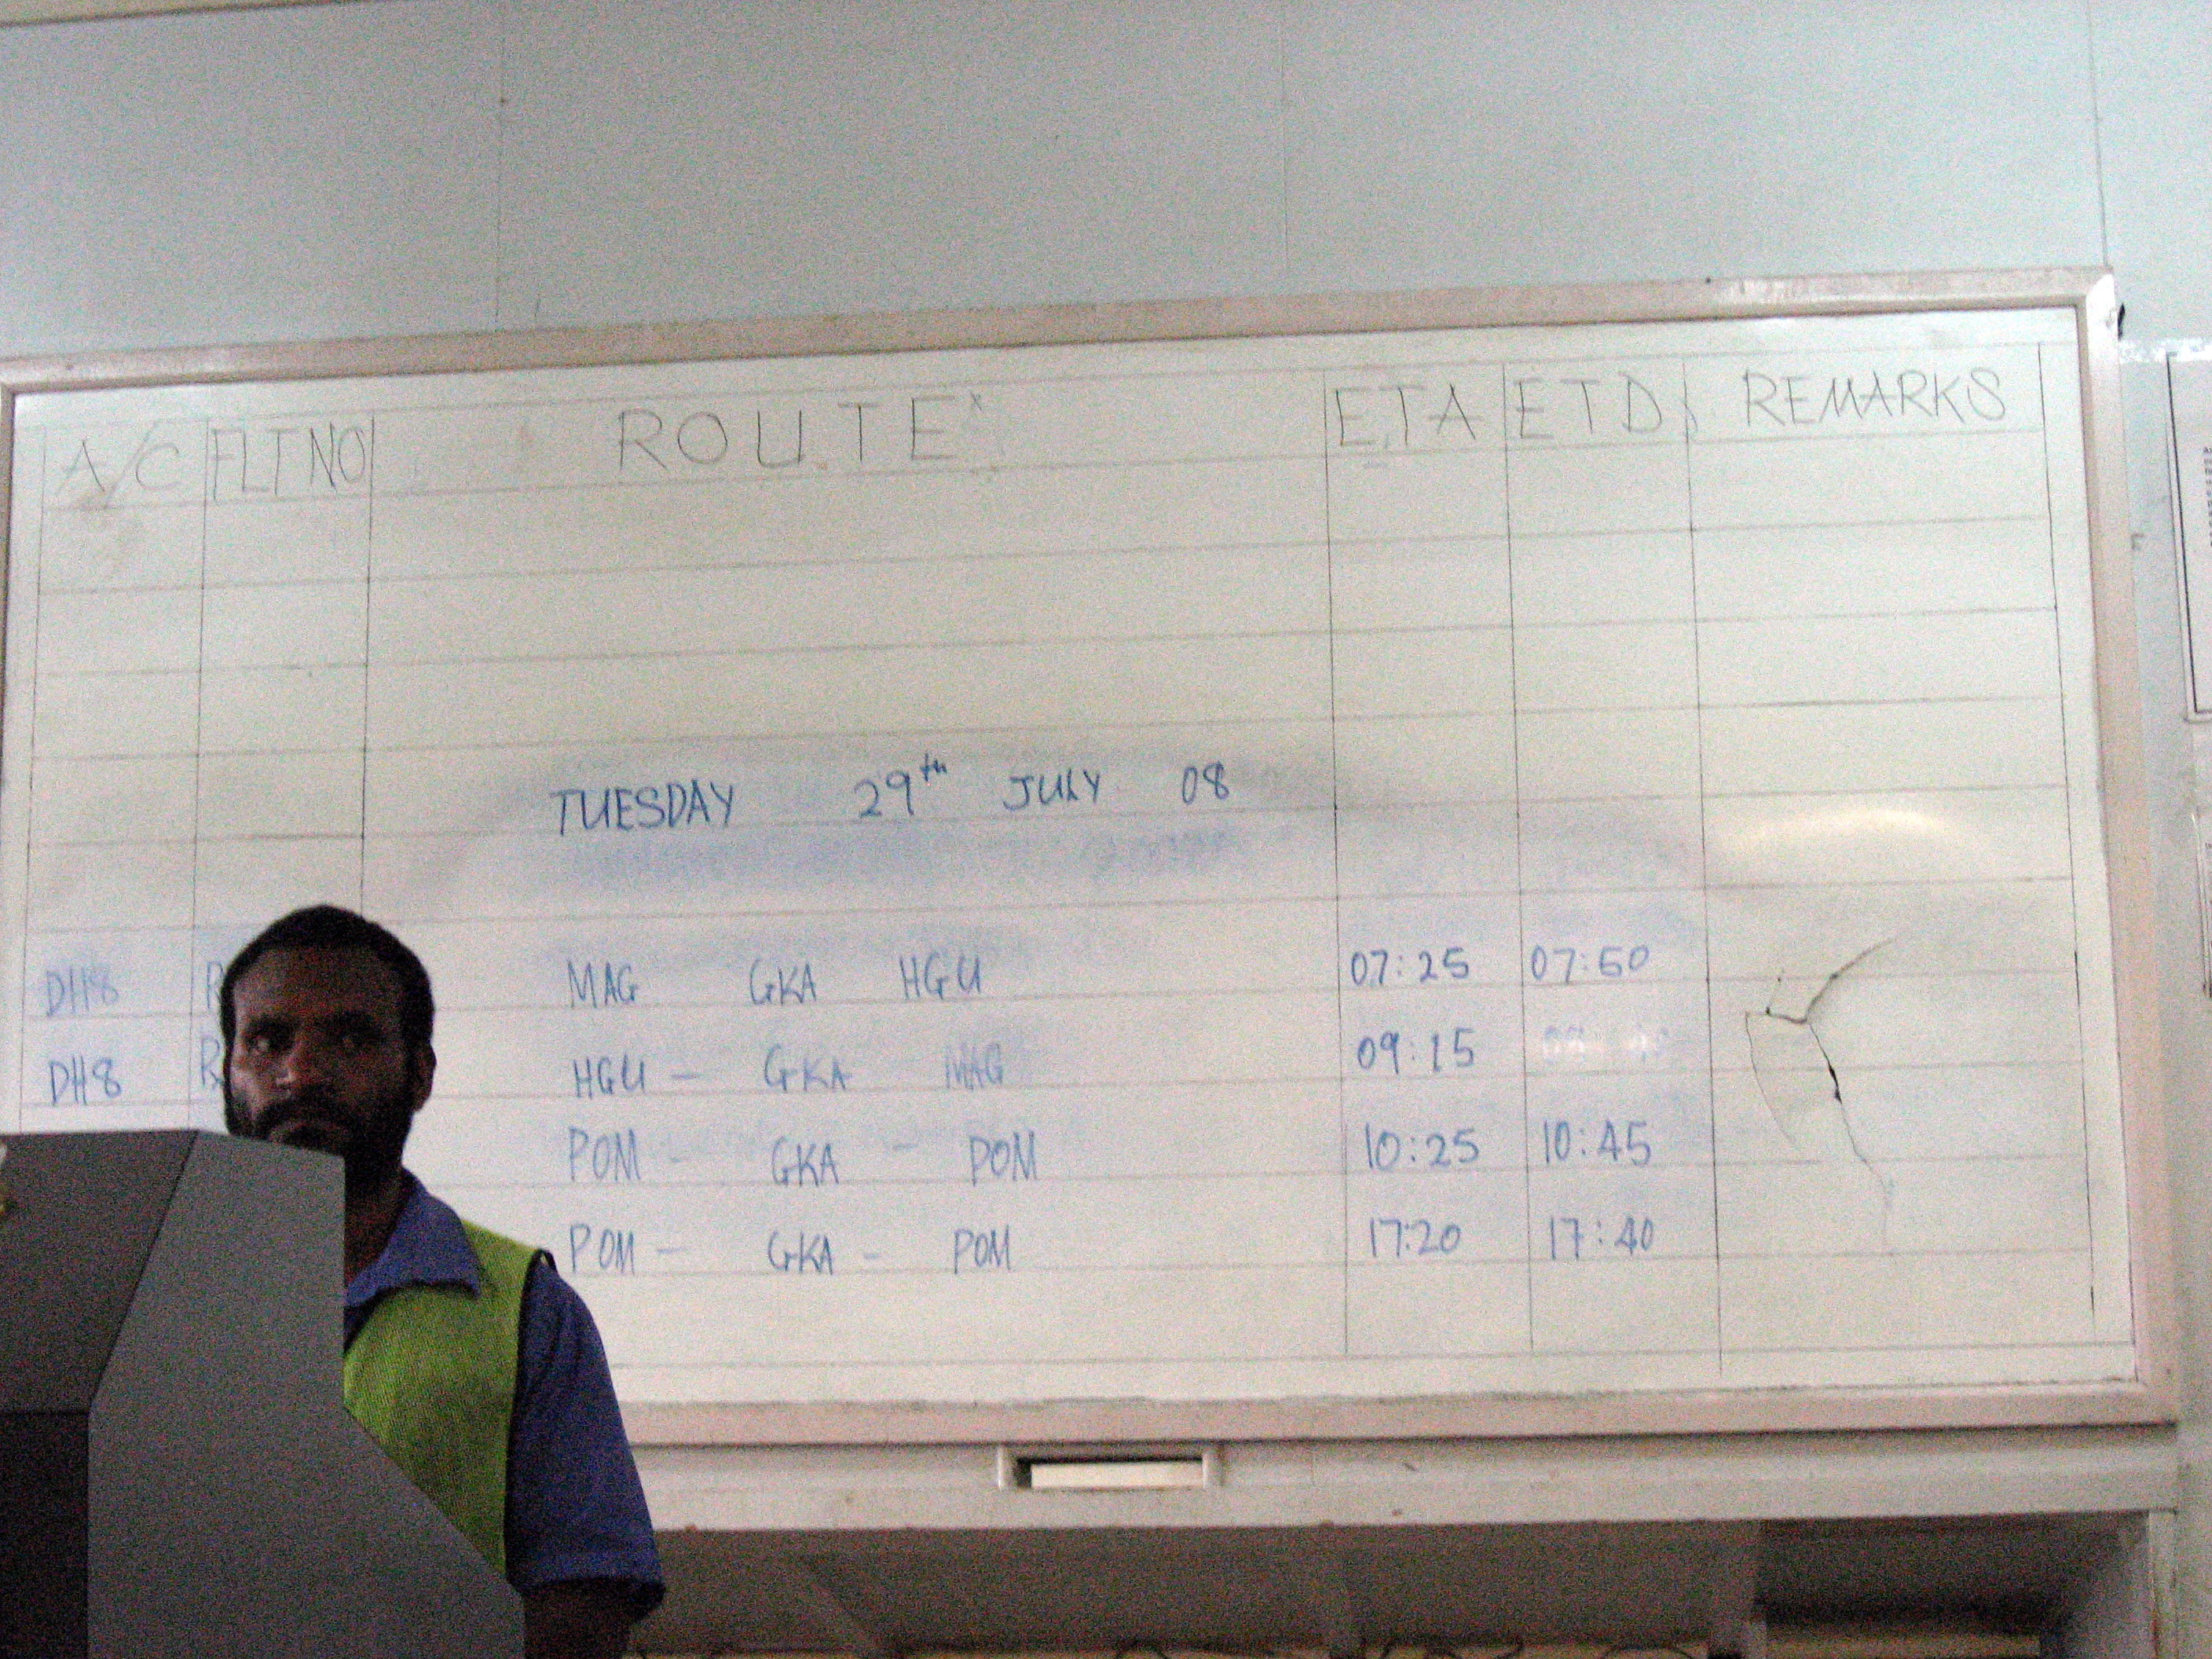 A/C FLT NO ROUTE ETA ETD REMARKS
TUESDAY 29th JULY 08
DH8 MAG GKA HGU 07:25 07:50
DH8 HGU — GKA MAG 09:15
POM - GKA - POM 10:25 10:45
POM — GKA - POM 17:20 17:40